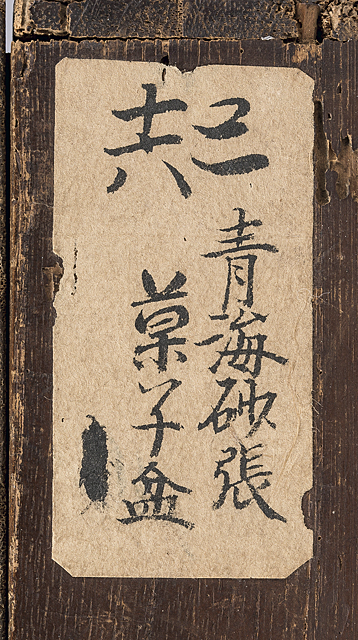 青海砂張
十六
菓子盆